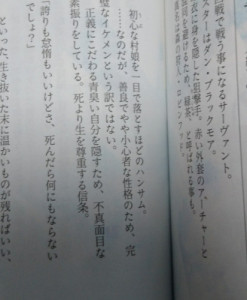 戦で戦う事になるサーヴァント。
スターはダン・ブラックモア
衣に身を隠した狙撃手。赤い外套のアーチャーと
を避けるため、緑茶、と呼ばれる事も。
初心な村娘を一目で落とすほどのハンサム。
…なのだが、善良でやや小心者な性格のため、完
璧なイケメンという訳ではない。
正義にこだわる青臭い自分を隠すため、不真面目な
素振りをしている。死より生を尊重する信条。
「誇りも怠惰もいいけどさ、死んだら何にもならない
でしょ？」
といった、生き抜いた末に温かいものが残ればいい、